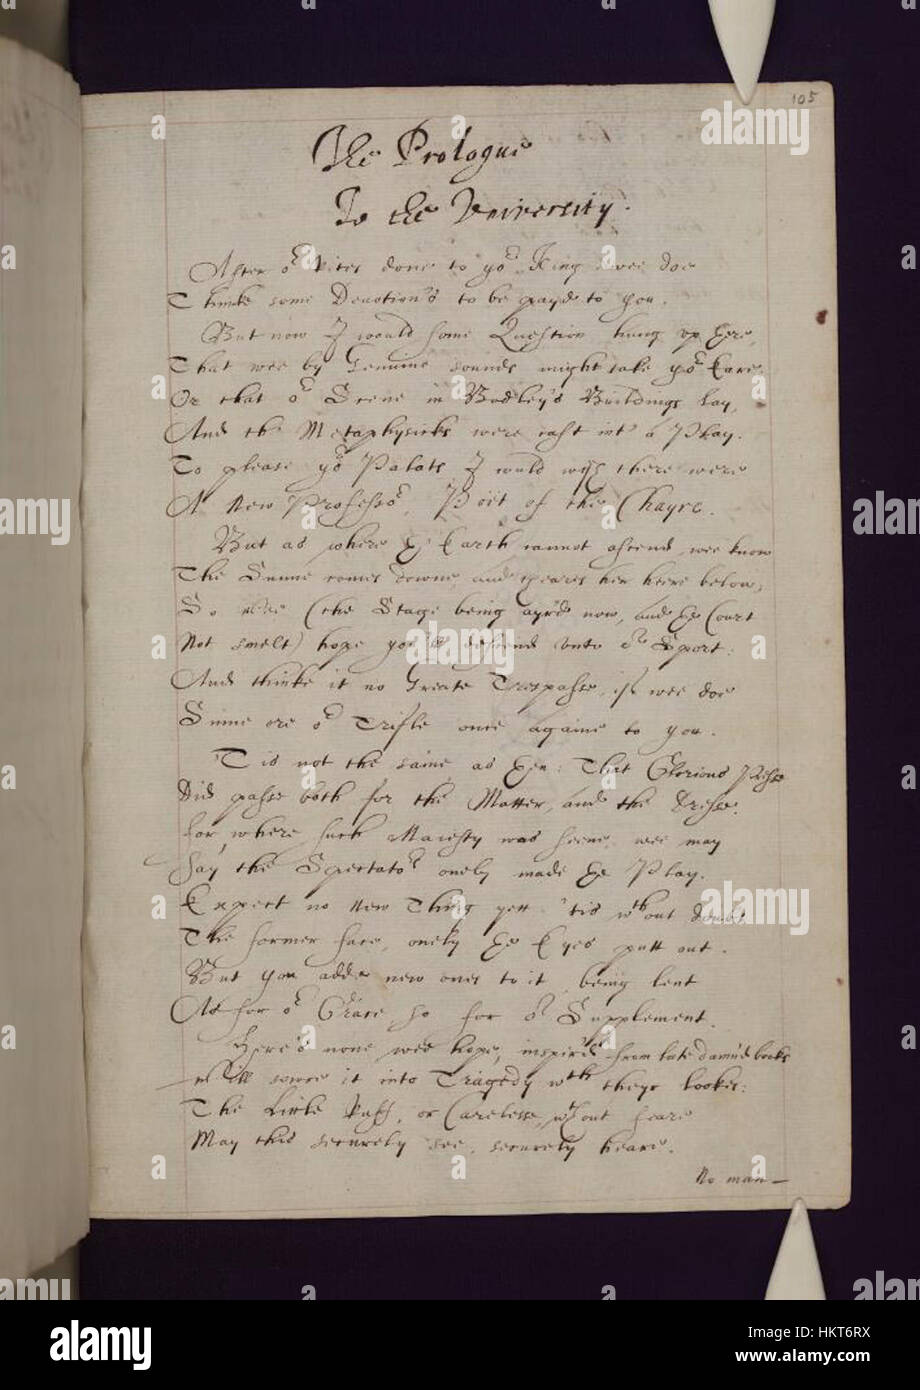 105
The Prologue
To the University.
After oʳ Rites done to yoʳ King wee doe
Thinke some Devotion's to be payd to you.
But now I would some Question hung vp here,
That wee by Genuine sounds might take yoʳ Eare
Or that oʳ Scene in Bodley's Buildings lay,
And the Metaphysicks were cast intᵒ a Play.
To please yoʳ Palats I could wish there were
A New Professoʳ, Poët of the Chayre.
But as where yᵉ Earth cannot ascend, wee know
The Sunne comes downe, and cheares her heere below;
So wee (the Stage being ayr'd now, and yᵉ Court
Not smelt) hope you'll descend vnto oʳ Sport:
And thinke it no Greate Trespasse, if wee doe
Sinne ore oʳ Trifle once againe to you.
Tis not the same as then: That Glorious
Did passe both for the Matter, and the Dresse.
for, where such Maiesty was seene, wee may
say the Spectatoʳˢ onely made yᵉ Play.
Expect no New Thing yett: 'tis wᵗʰout doubt
The former face, onely yᵉ Eyes putt out.
But you adde new ones to it, being lent
As for oʳ Grace, so for oʳ Supplement.
Here's none, wee hope, inspir'd from late damn'd books
will sowre it into Tragedy wᵗʰ theyr lookes:
The Little Ruff, or Carelesse, wᵗʰout feare
May this securely see, securely heare.
No man
alamy
Image ID: HKT6RX
www.alamy.com